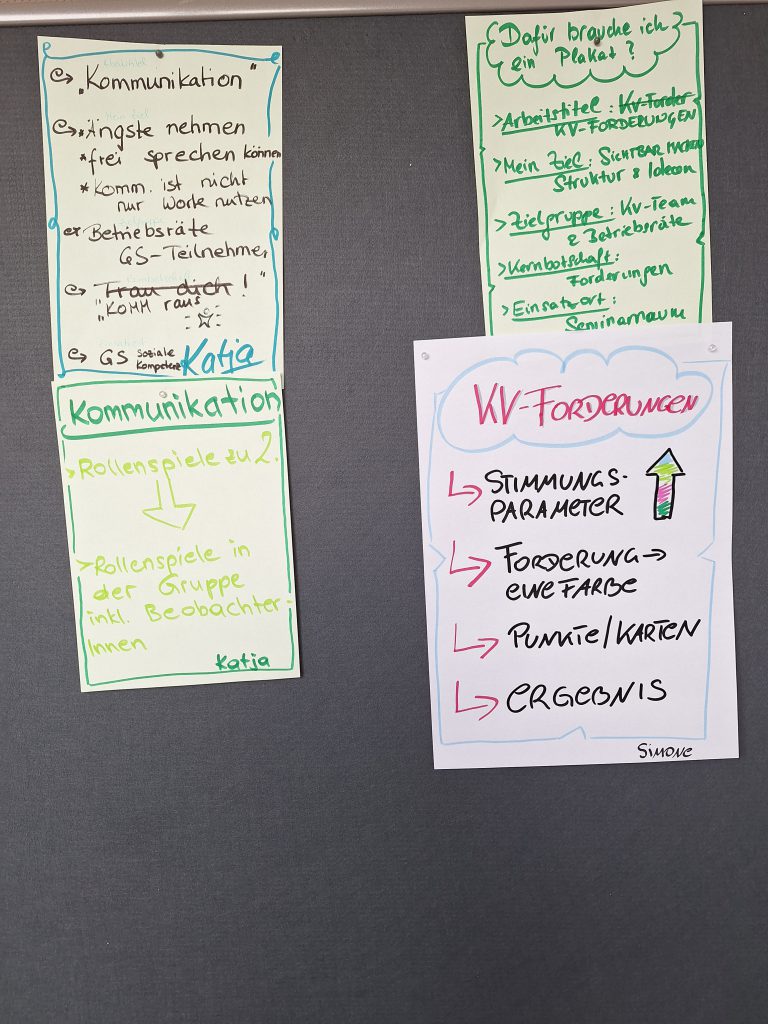 „Kommunikation"
*Ängste nehmen
*frei sprechen können
*Komm. ist nicht
nur Worte nutzen
Betriebsräte
GS-Teilnehmer
Trau dich!"
"KOMM raus
GS Soziale
Kompetenz
Katja
Kommunikation
>Rollenspiele zu 2.
>Rollenspiele in
der Gruppe
inkl. Beobachter-
Innen
Katja
Dafür brauche ich
ein Plakat?
>Arbeitstitel: KV-Forder
KV-FORDERUNGEN
>Mein Ziel: SICHTBAR MACHEN
Struktur & Ideen
>Zielgruppe: KV-Team
& Betriebsräte
>Kernbotschaft:
Forderungen
>Einsatzort:
Seminarraum
KV-FORDERUNGEN
STIMMUNGS-
PARAMETER
FORDERUNG→
EINE FARBE
PUNKTE/KARTEN
ERGEBNIS
SIMONE